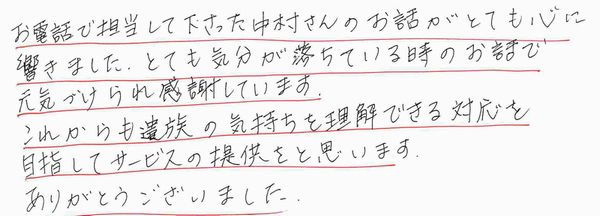 お電話で担当して下さった中村さんのお話がとても心に
響きました. とても気分が落ちている時のお話で
元気づけられ感謝しています.
これからも遺族の気持ちを理解できる対応を
目指してサービスの提供をと思います.
ありがとうございました.